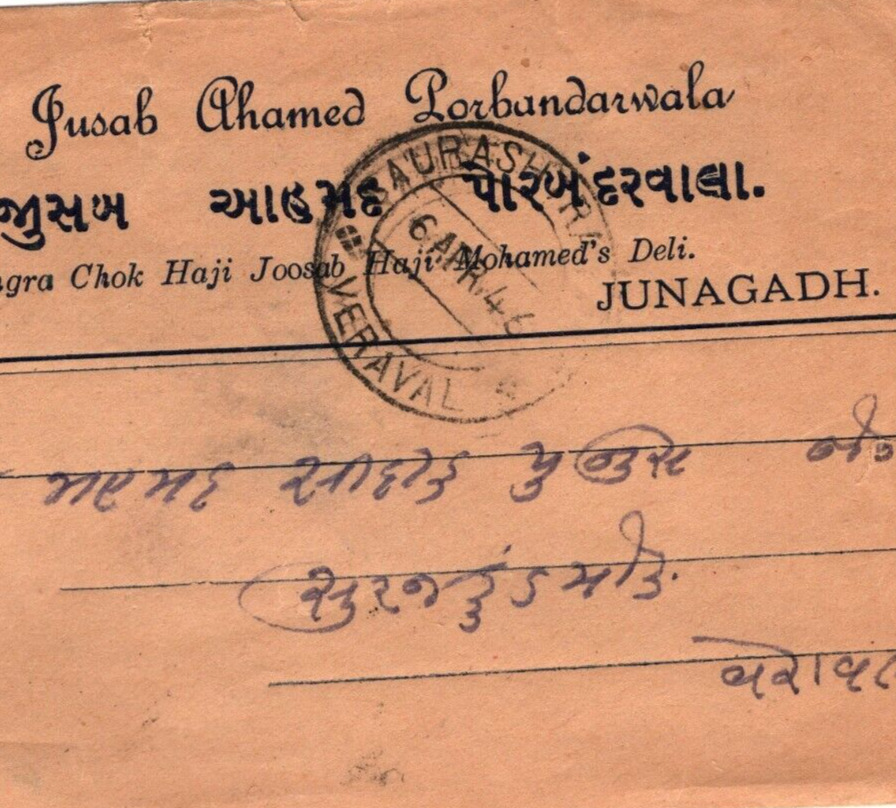 Jusab Ahamed Porbandarwala
જીુસબ આહમદ પોરબંદરવાલા.
ngra Chok Haji Joosab Haji Mohamed's Deli.
JUNAGADH.
SAURASHTRA
6 APR. 46
VERAVAL
મહમદ સીદીક યુનુસ
સુરજકુંડ ચોક.
વેરાવલ